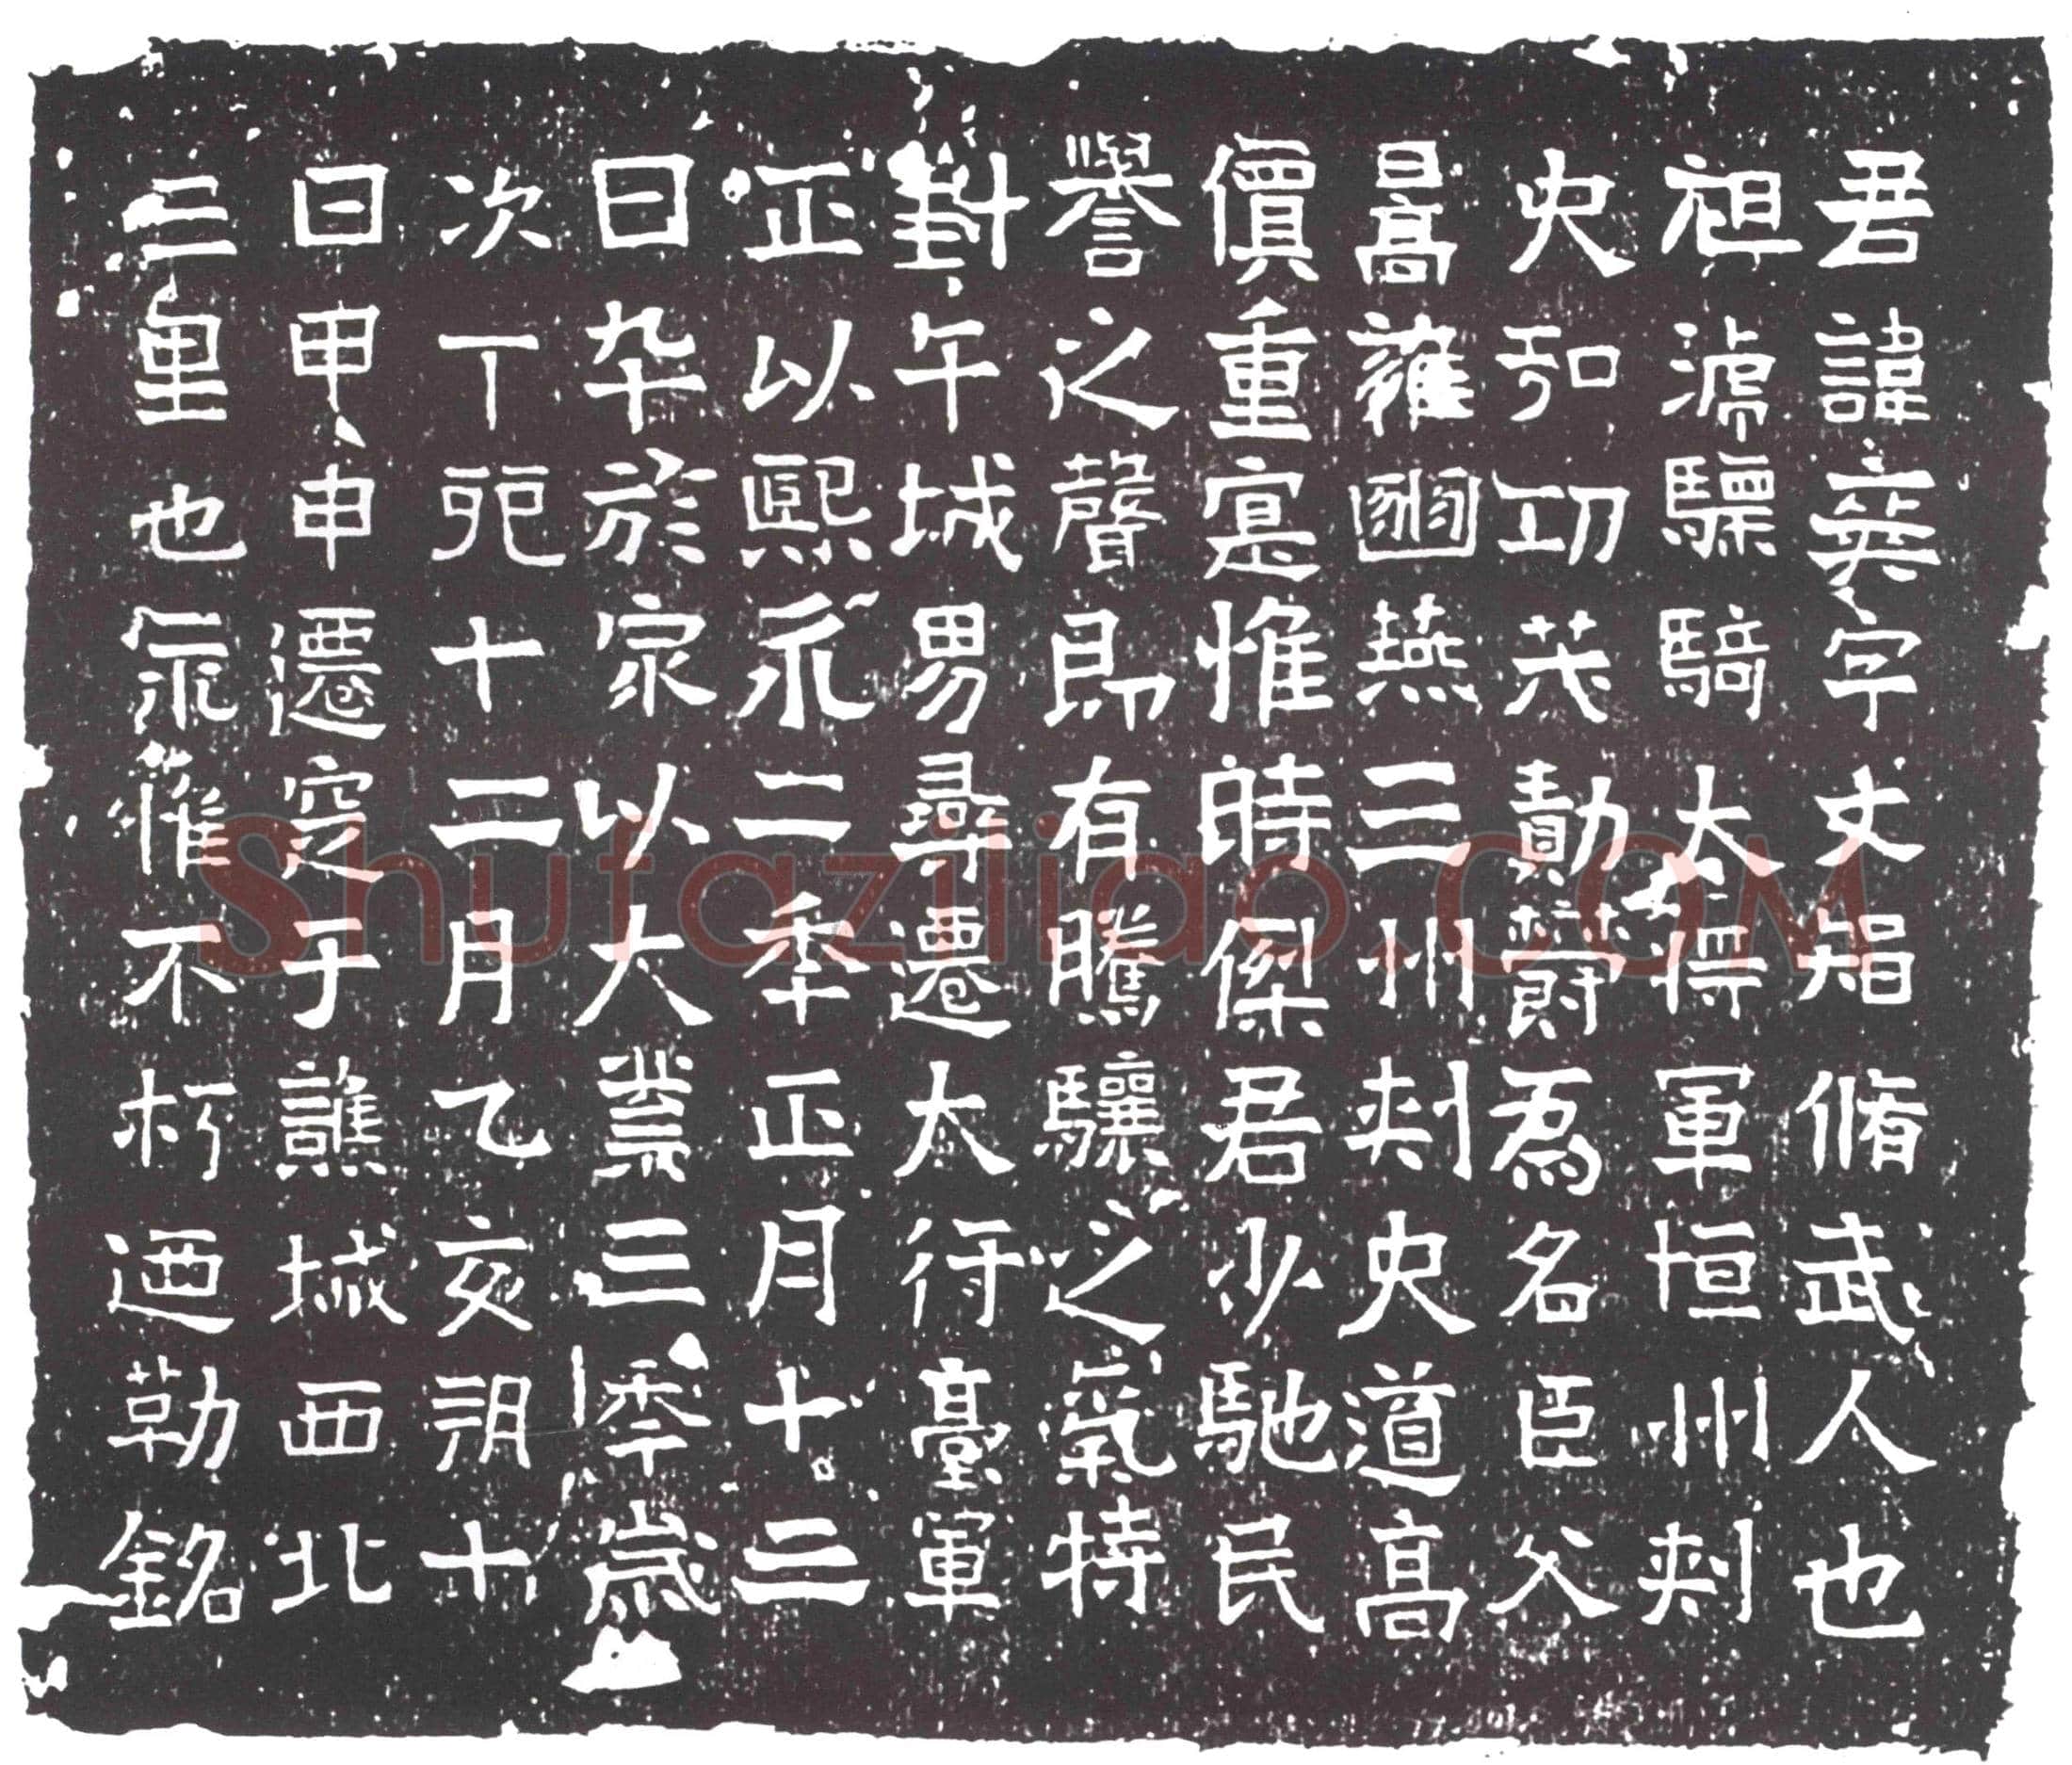 君諱字文智脩武人也
祖驃騎大將軍恒州刺
史弘功茂勳爵為名臣父
暠雍豳燕三州刺史道高
價重寔惟時傑君少馳民
譽之聲即有騰驤之氣特
封午城男尋遷太行臺軍
正以熙永二年正月十三
日卒於家以大業三年歲
次丁卯十二月乙亥朔十
日甲申遷窆于譙城西北
三里也惟不朽迺勒銘
Shufaziliao.COM